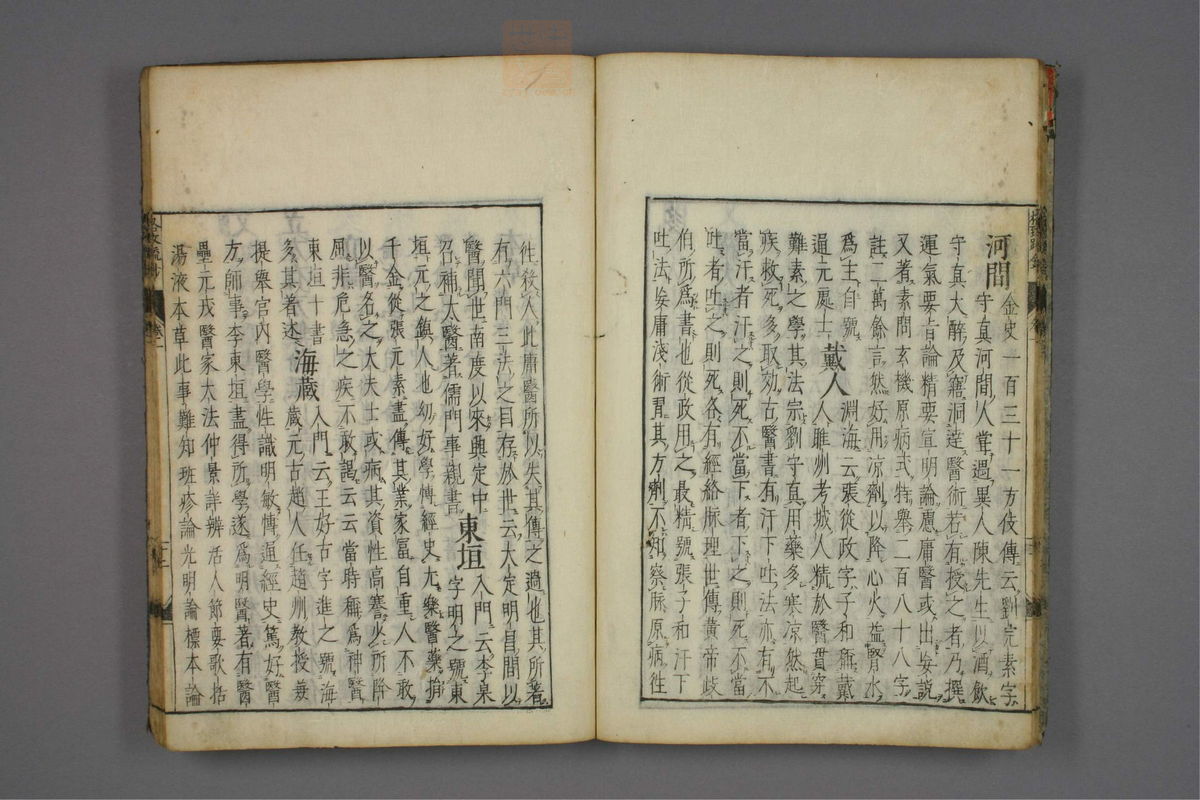 河間 金史一百三十一方伎傳云劉完素字
守真河間人嘗遇異人陳先生以酒飲
守真大醉及寤洞達醫術若有授之者乃撰
運氣要旨論精要宣明論慮庸醫或出妄說
又著素問玄機原病式特舉二百八十八字
註二萬餘言然好用凉劑以降心火益腎水
爲主自號
通元處士 戴人 淵海云張從政字子和稱戴
人睢州考城人精於醫貫穿
難素之學其法宗劉守真用藥多寒凉然起
疾救死多取効古醫書有汗下吐法亦有不
當汗者汗之則死不當下者下之則死不當
吐者吐之則死各有經絡脉理世傳黃帝歧
伯所爲書也從政用之最精號張子和汗下
吐法妄庸淺術習其方劑不知察脉原病徃
徃殺人此庸醫所以失其傳之過也其所著
有六門三法之目存於世云大定明昌間以
醫聞世南度以來興定中
召神太醫著儒門事親書 東垣 入門云李杲
字明之號東
垣元之鎮人也幼好學博經史尤樂醫藥捐
千金從張元素盡傳其業家富自重人不敢
以醫名之大夫士或病其資性高謇少所降
屈非危急之疾不敢謁云云當時稱爲神醫
東垣十書
多其著述 海藏 入門云王好古字進之號海
藏元古趙人任趙州教授兼
提舉官內醫學性識明敏博通經史篤好醫
方師事李東垣盡得所學遂爲明醫著有醫
壘元戎醫家大法仲景詳辨活人節要歌括
湯液本草此事難知斑疹論光明論標本論